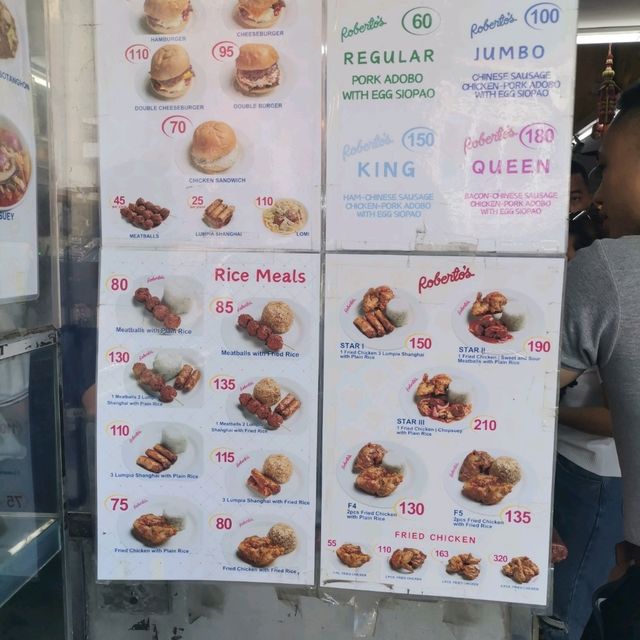 BOTANGHON
SUEY
HAMBURGER
CHEESEBURGER
110
95
DOUBLE CHEESEBURGER
DOUBLE BURGER
70
CHICKEN SANDWICH
45
25
110
MEATBALLS
LUMPIA SHANGHAI
LOMI
Roberto's 60
REGULAR
PORK ADOBO
WITH EGG SIOPAO
Roberto's 100
JUMBO
CHINESE SAUSAGE
CHICKEN-PORK ADOBO
WITH EGG SIOPAO
Roberto's 150
KING
HAM-CHINESE SAUSAGE
CHICKEN-PORK ADOBO
WITH EGG SIOPAO
Roberto's 180
QUEEN
BACON-CHINESE SAUSAGE
CHICKEN-PORK ADOBO
WITH EGG SIOPAO
Rice Meals
80
Meatballs with Plain Rice
85
Meatballs with Fried Rice
130
1 Meatballs 2 Lumpia
Shanghai with Plain Rice
135
1 Meatballs 2 Lumpia
Shanghai with Fried Rice
110
3 Lumpia Shanghai with Plain Rice
115
3 Lumpia Shanghai with Fried Rice
75
Fried Chicken with Plain Rice
80
Fried Chicken with Fried Rice
Roberto's
STAR I
1 Fried Chicken 3 Lumpia Shanghai
with Plain Rice
150
STAR II
1 Fried Chicken | Sweet and Sour
Meatballs with Plain Rice
190
STAR III
1 Fried Chicken | Chopsuey
with Plain Rice
210
F4
2pcs Fried Chicken
with Plain Rice
130
F5
2pcs Fried Chicken
with Fried Rice
135
FRIED CHICKEN
55
110
163
320
75